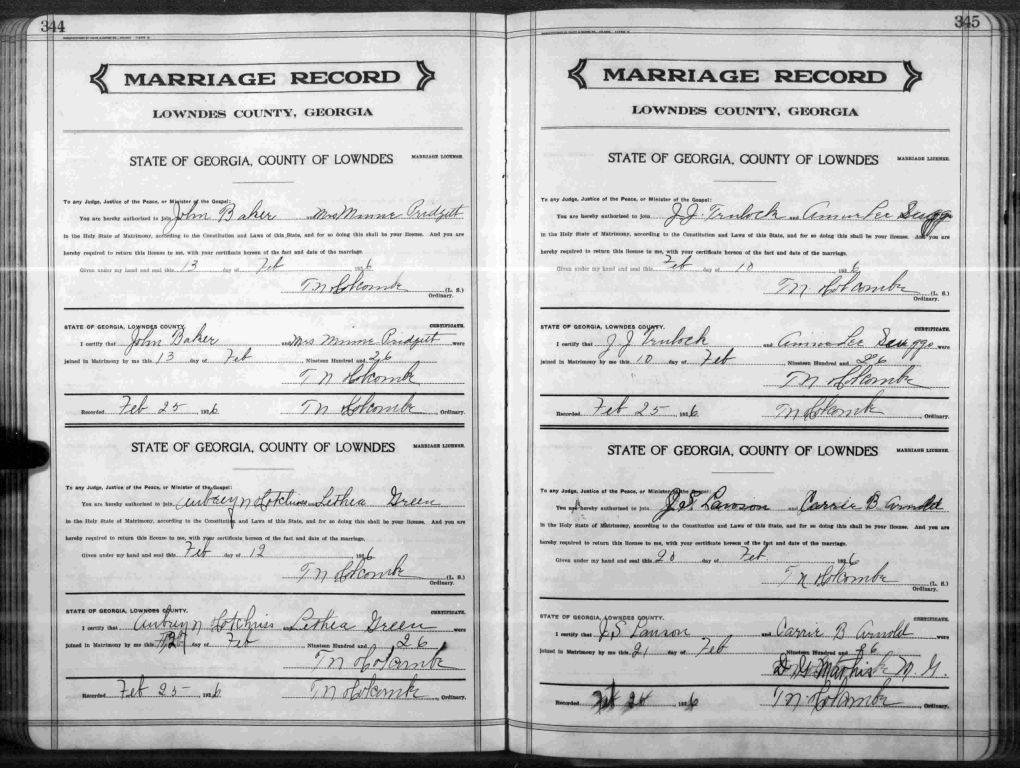 344
MARRIAGE RECORD
LOWNDES COUNTY, GEORGIA
STATE OF GEORGIA, COUNTY OF LOWNDES MARRIAGE LICENSE.
To any Judge, Justice of the Peace, or Minister of the Gospel:
You are hereby authorized to join John Baker and Mrs Minnie Pridgett
in the Holy State of Matrimony, according to the Constitution and Laws of this State, and for so doing this shall be your license. And you are
hereby required to return this license to me, with your certificate hereon of the fact and date of the marriage.
Given under my hand and seal this 13 day of Feb 1926
T N Holcombe (L. S.)
Ordinary.
STATE OF GEORGIA, LOWNDES COUNTY. CERTIFICATE.
I certify that John Baker and Mrs Minnie Pridgett were
joined in Matrimony by me this 13 day of Feb Nineteen Hundred and 26
T N Holcombe
Recorded Feb 25 1926 T N Holcombe, Ordinary.
STATE OF GEORGIA, COUNTY OF LOWNDES MARRIAGE LICENSE.
To any Judge, Justice of the Peace, or Minister of the Gospel:
You are hereby authorized to join Aubrey N Lethea Green
in the Holy State of Matrimony, according to the Constitution and Laws of this State, and for so doing this shall be your license. And you are
hereby required to return this license to me, with your certificate hereon of the fact and date of the marriage.
Given under my hand and seal this Feb day of 12 1926
T N Holcombe (L. S.)
Ordinary.
STATE OF GEORGIA, LOWNDES COUNTY. CERTIFICATE.
I certify that Aubrey N Lethea Green were
joined in Matrimony by me this day of Feb Nineteen Hundred and 26
T N Holcombe
Recorded Feb 25 1926 T N Holcombe, Ordinary.
345
MARRIAGE RECORD
LOWNDES COUNTY, GEORGIA
STATE OF GEORGIA, COUNTY OF LOWNDES MARRIAGE LICENSE.
To any Judge, Justice of the Peace, or Minister of the Gospel:
You are hereby authorized to join J. J. Trulock and Annie Lee Scuggs
in the Holy State of Matrimony, according to the Constitution and Laws of this State, and for so doing this shall be your license. And you are
hereby required to return this license to me, with your certificate hereon of the fact and date of the marriage.
Given under my hand and seal this Feb day of 10 1926
T N Holcombe (L. S.)
Ordinary.
STATE OF GEORGIA, LOWNDES COUNTY. CERTIFICATE.
I certify that J J Trulock and Annie Lee Scuggs were
joined in Matrimony by me this 10 day of Feb Nineteen Hundred and 26
T N Holcombe
Recorded Feb 25 1926 T N Holcombe, Ordinary.
STATE OF GEORGIA, COUNTY OF LOWNDES MARRIAGE LICENSE.
To any Judge, Justice of the Peace, or Minister of the Gospel:
You are hereby authorized to join J. S. Lawson and Carrie B Arnold
in the Holy State of Matrimony, according to the Constitution and Laws of this State, and for so doing this shall be your license. And you are
hereby required to return this license to me, with your certificate hereon of the fact and date of the marriage.
Given under my hand and seal this 20 day of Feb 1926
T N Holcombe (L. S.)
Ordinary.
STATE OF GEORGIA, LOWNDES COUNTY. CERTIFICATE.
I certify that J S Lawson and Carrie B Arnold were
joined in Matrimony by me this 21 day of Feb Nineteen Hundred and 26
M. G.
Recorded Feb 1926 T N Holcombe, Ordinary.